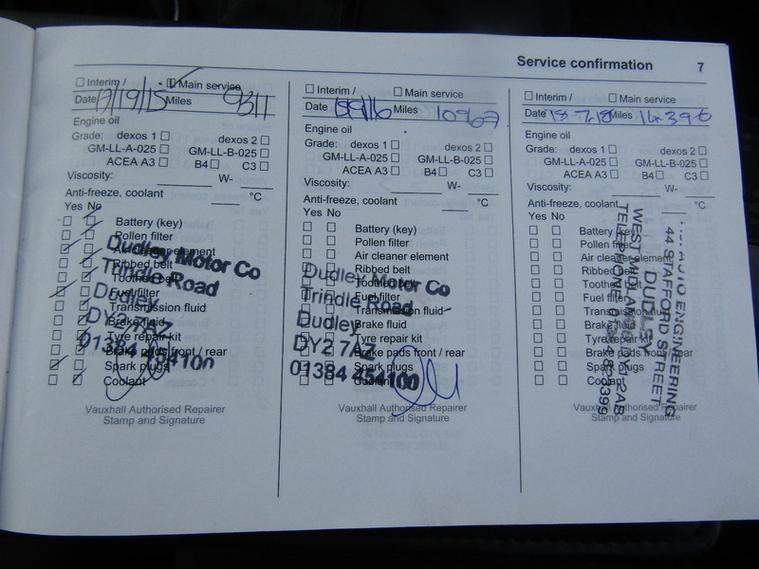 Service confirmation 7
Interim / Main service
Date 17/19/15 Miles 9311
Engine oil
Grade: dexos 1 dexos 2
GM-LL-A-025 GM-LL-B-025
ACEA A3 B4 C3
Viscosity: W-
Anti-freeze, coolant °C
Yes No
Battery (key)
Pollen filter
Air cleaner element
Ribbed belt
Toothed belt
Fuel filter
Transmission fluid
Brake fluid
Tyre repair kit
Brake pads front / rear
Spark plugs
Coolant
Dudley Motor Co
Trindle Road
Dudley
DY2 7AZ
01384 454100
Vauxhall Authorised Repairer
Stamp and Signature
Interim / Main service
Date Miles
Engine oil
Grade: dexos 1 dexos 2
GM-LL-A-025 GM-LL-B-025
ACEA A3 B4 C3
Viscosity: W-
Anti-freeze, coolant °C
Yes No
Battery (key)
Pollen filter
Air cleaner element
Ribbed belt
Toothed belt
Fuel filter
Transmission fluid
Brake fluid
Tyre repair kit
Brake pads front / rear
Spark plugs
Coolant
Dudley Motor Co
Trindle Road
Dudley
DY2 7AZ
01384 454100
Vauxhall Authorised Repairer
Stamp and Signature
Interim / Main service
Date 18-7-18 Miles 14396
Engine oil
Grade: dexos 1 dexos 2
GM-LL-A-025 GM-LL-B-025
ACEA A3 B4 C3
Viscosity: W-
Anti-freeze, coolant °C
Yes No
Battery (key)
Pollen filter
Air cleaner element
Ribbed belt
Toothed belt
Fuel filter
Transmission fluid
Brake fluid
Tyre repair kit
Brake pads front / rear
Spark plugs
Coolant
AUTO ENGINEERING
44 STAFFORD STREET
DUDLEY
WEST MIDLANDS DY1 2AB
TELEPHONE
Vauxhall Authorised Repairer
Stamp and Signature